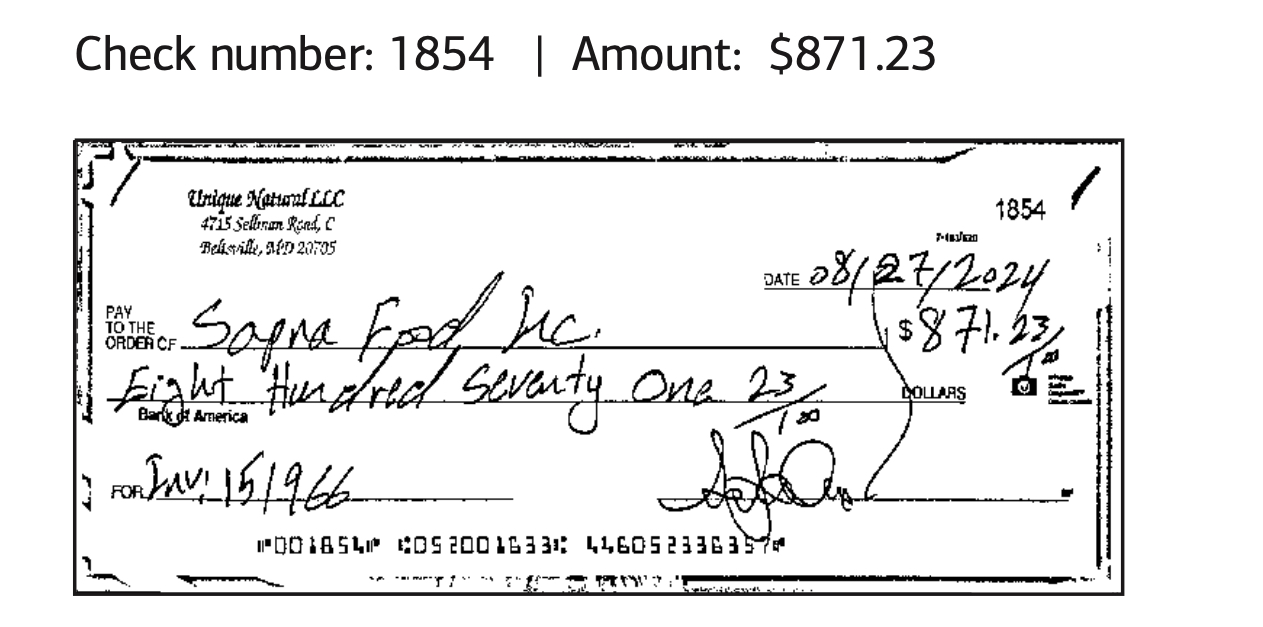 Check number: 1854 | Amount: $871.23
Unique Natural LLC
4715 Sellman Road, C
Beltsville, MD 20705
1854
DATE 08/27/2024
PAY
TO THE
ORDER OF Sapna Food Inc. $ 871.23/100
Eight Hundred Seventy One 23/100 DOLLARS
Bank of America
FOR Inv: 151966
⑈001854⑈ ⑆052001633⑆ 446052336357⑈